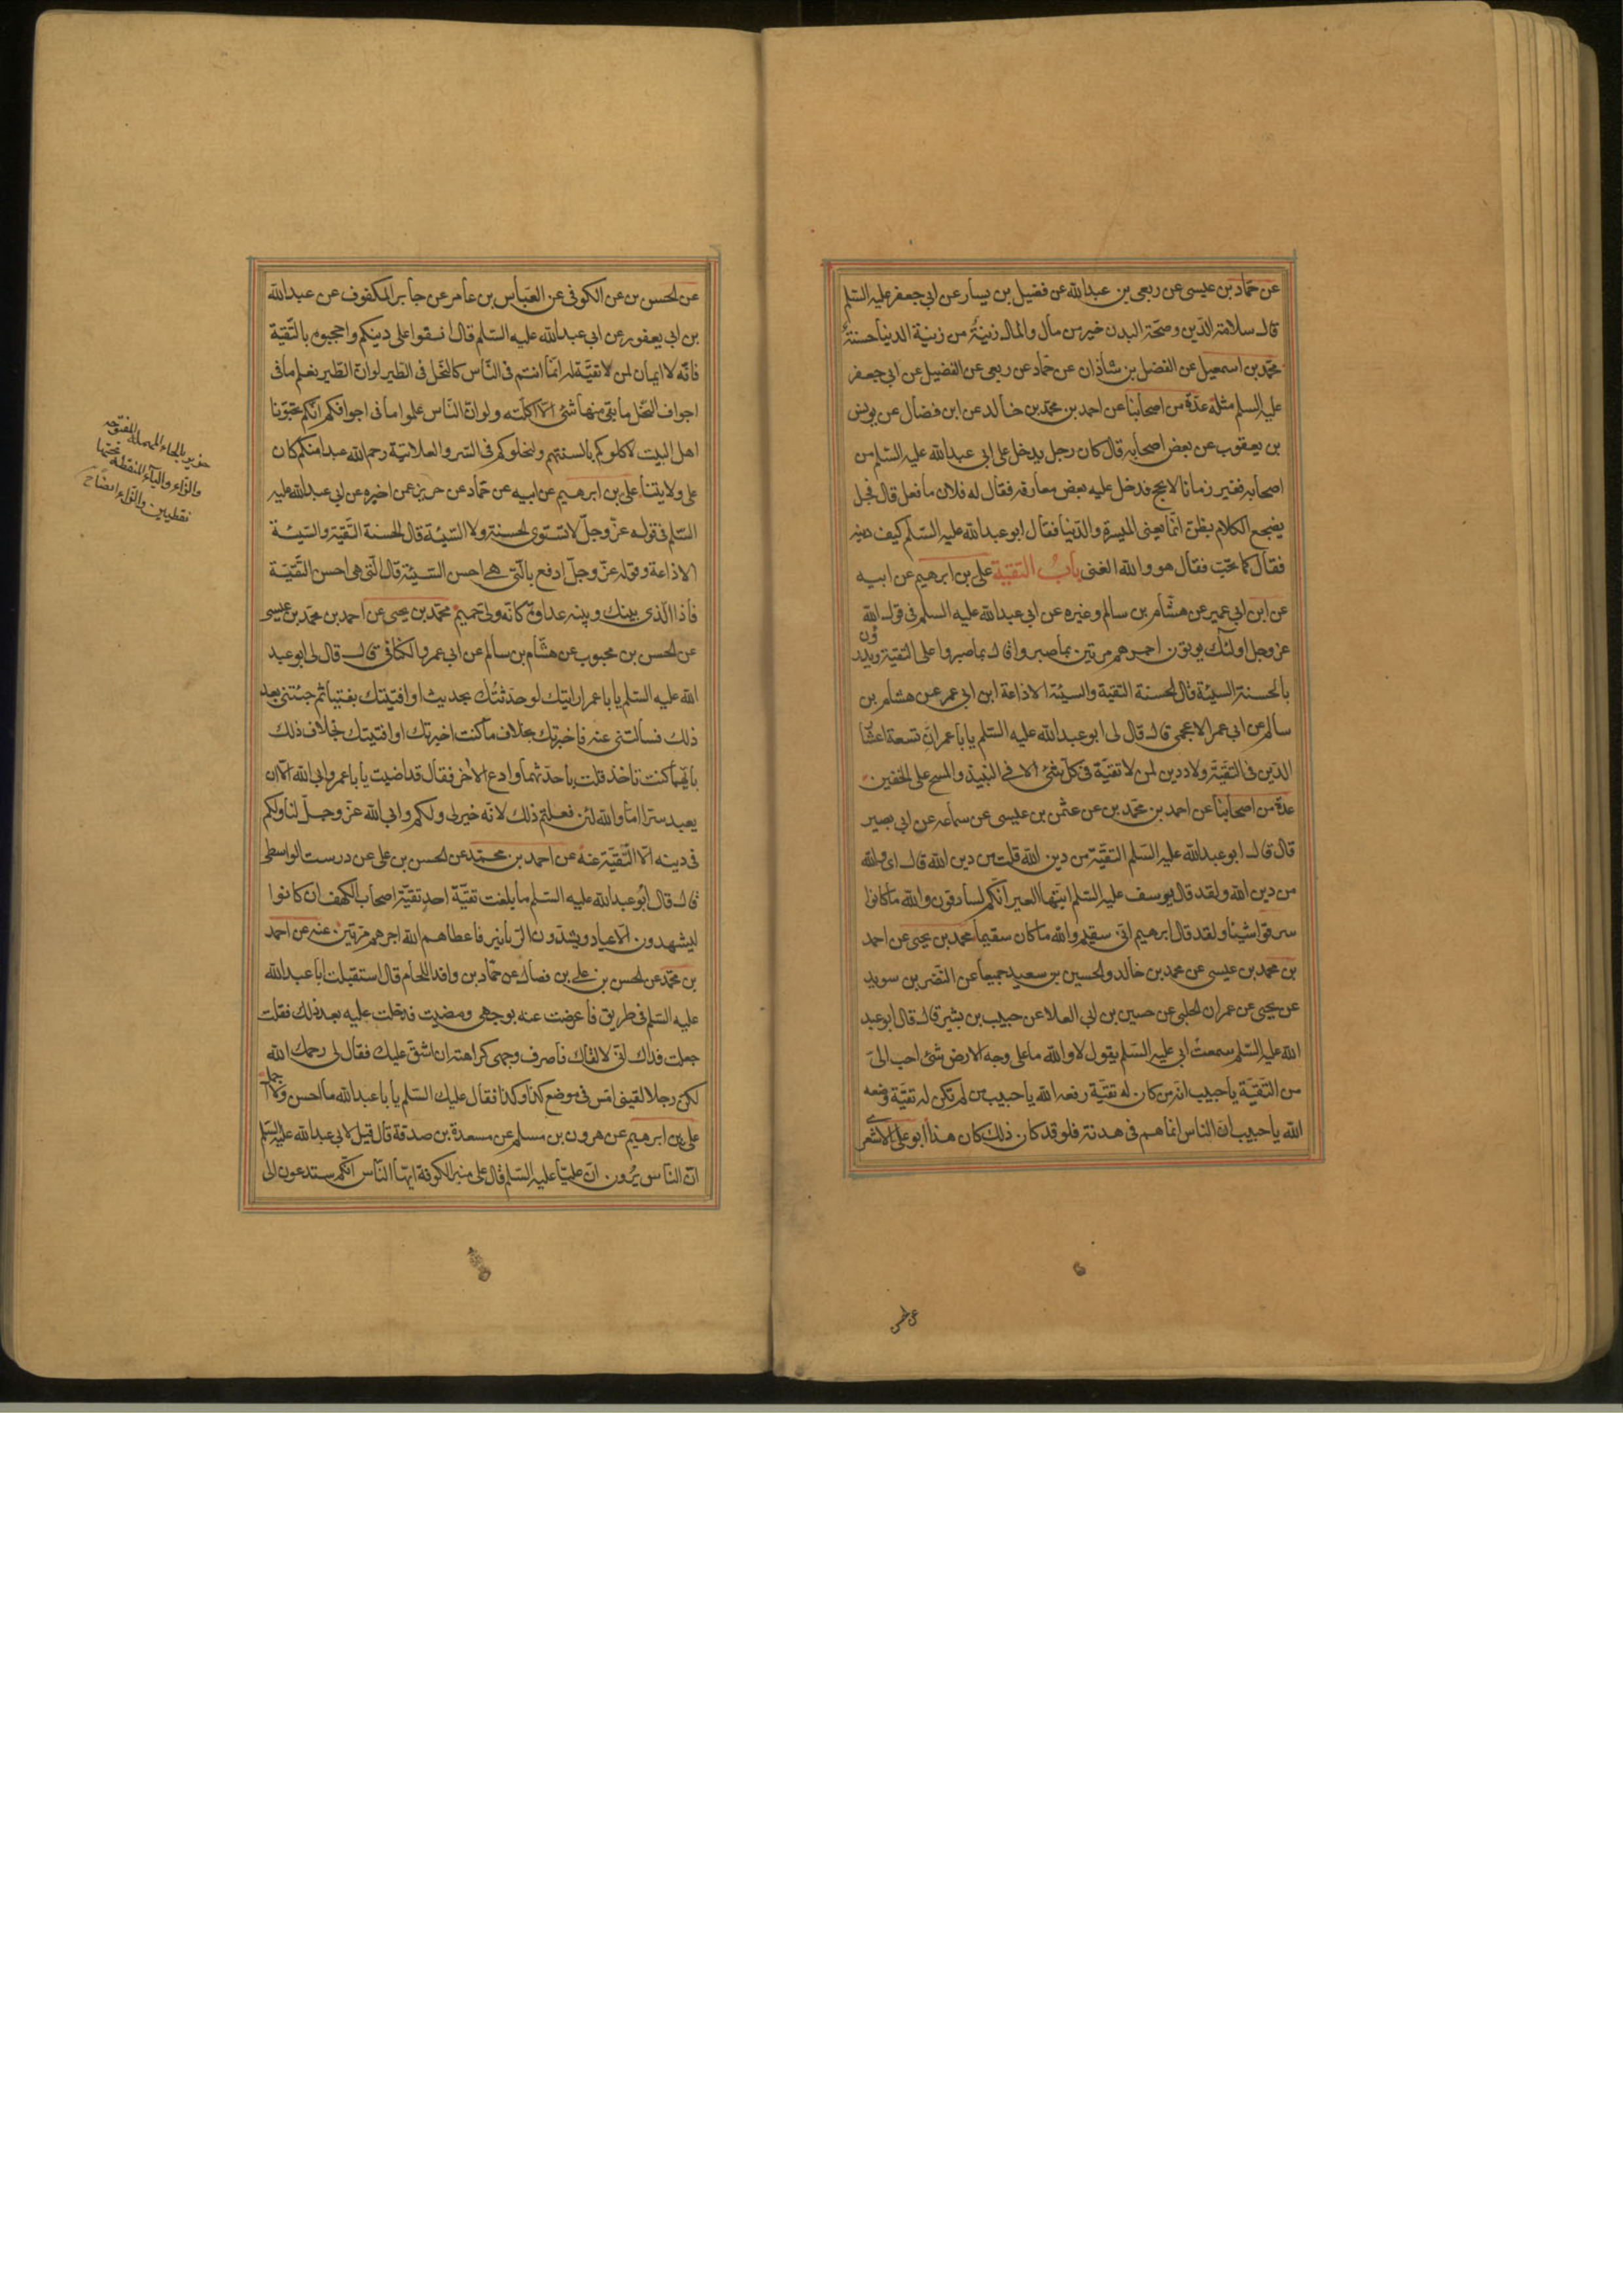 عن حماد بن عيسى عن ربعى بن عبدالله عن فضيل بن يسار عن ابى جعفر عليه السلم
قال سلامة الدين وصحة البدن خير من مال والمال زينة من زينة الدنيا حسنة
محمد بن اسمعيل عن الفضل بن شاذان عن حماد عن ربعى عن الفضيل عن ابى جعفر
عليه السلم مثله عدة من اصحابنا عن احمد بن محمد بن خالد عن ابن فضال عن يونس
بن يعقوب عن بعض اصحابه قال كان رجل يدخل على ابى عبدالله عليه السلم من
اصحابه فغير زمانا لا يحج فدخل عليه بعض معارفه فقال له فلان ما فعل قال فجعل
يضجع الكلام يظن انما يعنى الميسرة والدنيا فقال ابو عبدالله عليه السلم كيف دينه
فقال كما تحب فقال هو والله الغنى باب التقية على بن ابرهيم عن ابيه
عن ابن ابى عمير عن هشام بن سالم وغيره عن ابى عبدالله عليه السلم فى قول الله
عز وجل اولئك يوتون اجرهم مرتين بما صبروا قال بما صبروا على التقية ويدرؤن
بالحسنة السيئة قال الحسنة التقية والسيئة الاذاعة ابن ابى عمر عن هشام بن
سالم عن ابى عمر الاعجمى قال قال لى ابو عبدالله عليه السلم يا با عمر ان تسعة اعشار
الدين فى التقية ولا دين لمن لا تقية فى كل شئ الا فى النبيذ والمسح على الخفين
عدة من اصحابنا عن احمد بن محمد بن عن عثمن بن عيسى عن سماعه عن ابى بصير
قال قال ابو عبدالله عليه السلم التقية من دين الله قلت من دين الله قال اى والله
من دين الله ولقد قال يوسف عليه السلم ايتها العير انكم لسارقون والله ما كانوا
سرقوا شيئا ولقد قال ابرهيم انى سقيم والله ما كان سقيما محمد بن يحيى عن احمد
بن محمد بن عيسى عن محمد بن خالد والحسين بن سعيد جميعا عن النضر بن سويد
عن يحيى عن عمران الحلبى عن حسين بن ابى العلا عن حبيب بن بشير قال قال ابو عبد
الله عليه السلم سمعت ابى عليه السلم يقول لا والله ما على وجه الارض شئ احب الى
من التقية يا حبيب انه من كان له تقية رفعه الله يا حبيب من لم تكن له تقية وضعه
الله يا حبيب ان الناس انما هم فى هدنة فلو قد كان ذلك كان هذا ابو على الاشعرى
عن الحسن
عن الحسن بن عن الكوفى عن العباس بن عامر عن جابر المكفوف عن عبدالله
بن ابى يعفور عن ابى عبدالله عليه السلم قال اتقوا على دينكم واحجبوه بالتقية
فانه لا ايمان لمن لا تقية له انما انتم فى الناس كالنحل فى الطير لو ان الطير يعلم ما فى
اجواف النحل ما بقى منها شئ الا اكلته ولو ان الناس علموا ما فى اجوافكم انكم تحبونا
اهل البيت لاكلوكم بالسنتهم ولنحلوكم فى السر والعلانية رحم الله عبدا منكم كان
على ولايتنا على بن ابرهيم عن ابيه عن حماد عن حريز عن اخبره عن ابى عبدالله عليه
السلم فى قوله عز وجل لا تستوى الحسنة ولا السيئة قال الحسنة التقية والسيئة
الاذاعة وقوله عز وجل ادفع بالتى هى احسن السيئة قال التى هى احسن التقية
فاذا الذى بينك وبينه عداوة كانه ولى حميم محمد بن يحيى عن احمد بن محمد بن عيسى
عن الحسن بن محبوب عن هشام بن سالم عن ابى عمرو الكنانى قال قال لى ابو عبد
الله عليه السلم يا با عمر ارايتك لو حدثتك بحديث او افتيتك بفتيا ثم جئتنى بعد
ذلك فسألتنى عنه فاخبرتك بخلاف ما كنت اخبرتك او افتيتك بخلاف ذلك
بايهما كنت تاخذ قلت باحدثهما وادع الاخر فقال قد اصبت يا با عمرو ابى الله الا ان
يعبد سترا اما والله لئن فعلتم ذلك لانه خير لى ولكم وابى الله عز وجل لنا ولكم
فى دينه الا التقية عنه عن احمد بن محمد عن الحسن بن على عن درست الواسطى
قال قال ابو عبدالله عليه السلم ما بلغت تقية احد تقية اصحاب الكهف ان كانوا
ليشهدون الاعياد ويشدون الزنانير فاعطاهم الله اجرهم مرتين عنه عن احمد
بن محمد عن الحسن بن على بن فضال عن حماد بن واقد اللحام قال استقبلت ابا عبدالله
عليه السلم فى طريق فاعرضت عنه بوجهى ومضيت فدخلت عليه بعد ذلك فقلت
جعلت فداك انى لالقاك فاصرف وجهى كراهة ان اشق عليك فقال لى رحمك الله
لكن رجلا لقينى امس فى موضع كذا وكذا فقال عليك السلم يا با عبدالله ما احسن ولا اجمل
على بن ابرهيم عن هرون بن مسلم عن مسعدة بن صدقة قال قيل لابى عبدالله عليه السلم
ان الناس يرون ان عليا عليه السلم قال على منبر الكوفة ايها الناس انكم ستدعون الى
حريز بالحاء المهملة المفتوحة
والراء والياء المنقطة تحتها
نقطيتين والزاء ايضا ح